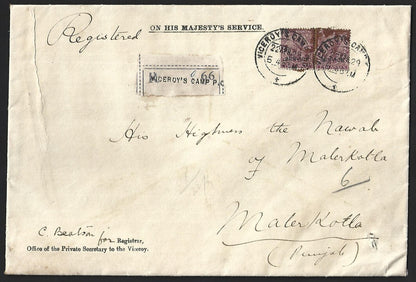 Registered
ON HIS MAJESTY'S SERVICE.
VICEROY'S CAMP
VICEROY'S CAMP P.O
66
His Highness the Nawab
of Malerkotla
Maler Kotla
(Punjab)
C. Beatson for Registrar,
Office of the Private Secretary to the Viceroy.